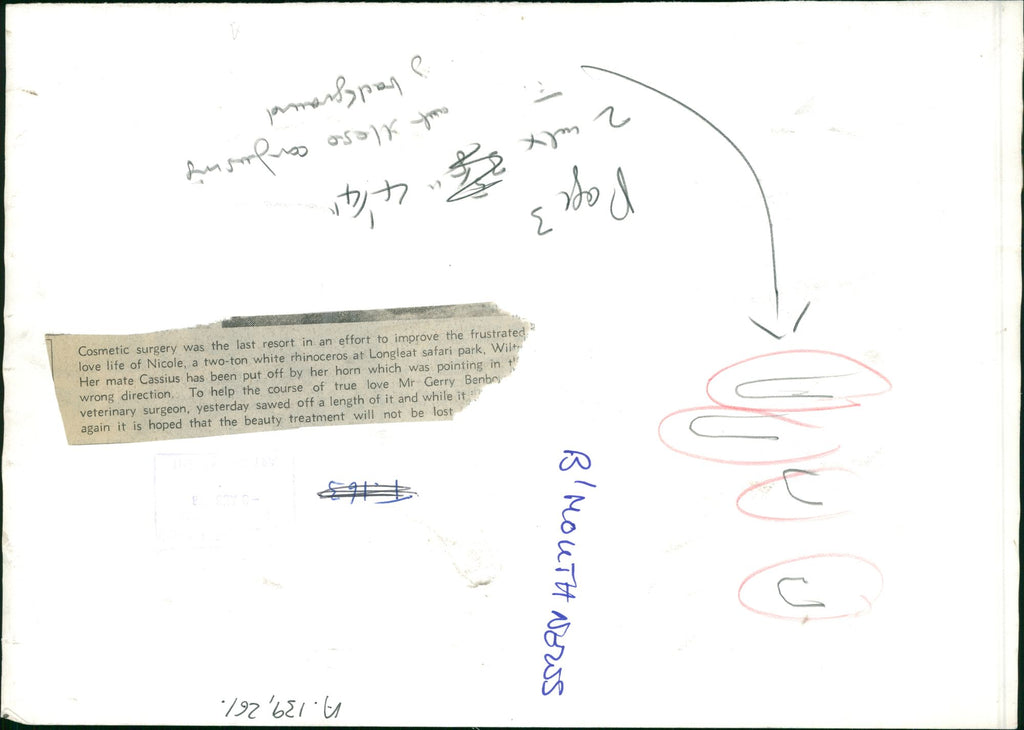 Page 3
2 col x 4 1/4"
background
Cosmetic surgery was the last resort in an effort to improve the frustrated
love life of Nicole, a two-ton white rhinoceros at Longleat safari park, Wilt
Her mate Cassius has been put off by her horn which was pointing in t
wrong direction. To help the course of true love Mr Gerry Benbo
veterinary surgeon, yesterday sawed off a length of it and while it
again it is hoped that the beauty treatment will not be lost
B/MOUTH NEWS
A.139,261.